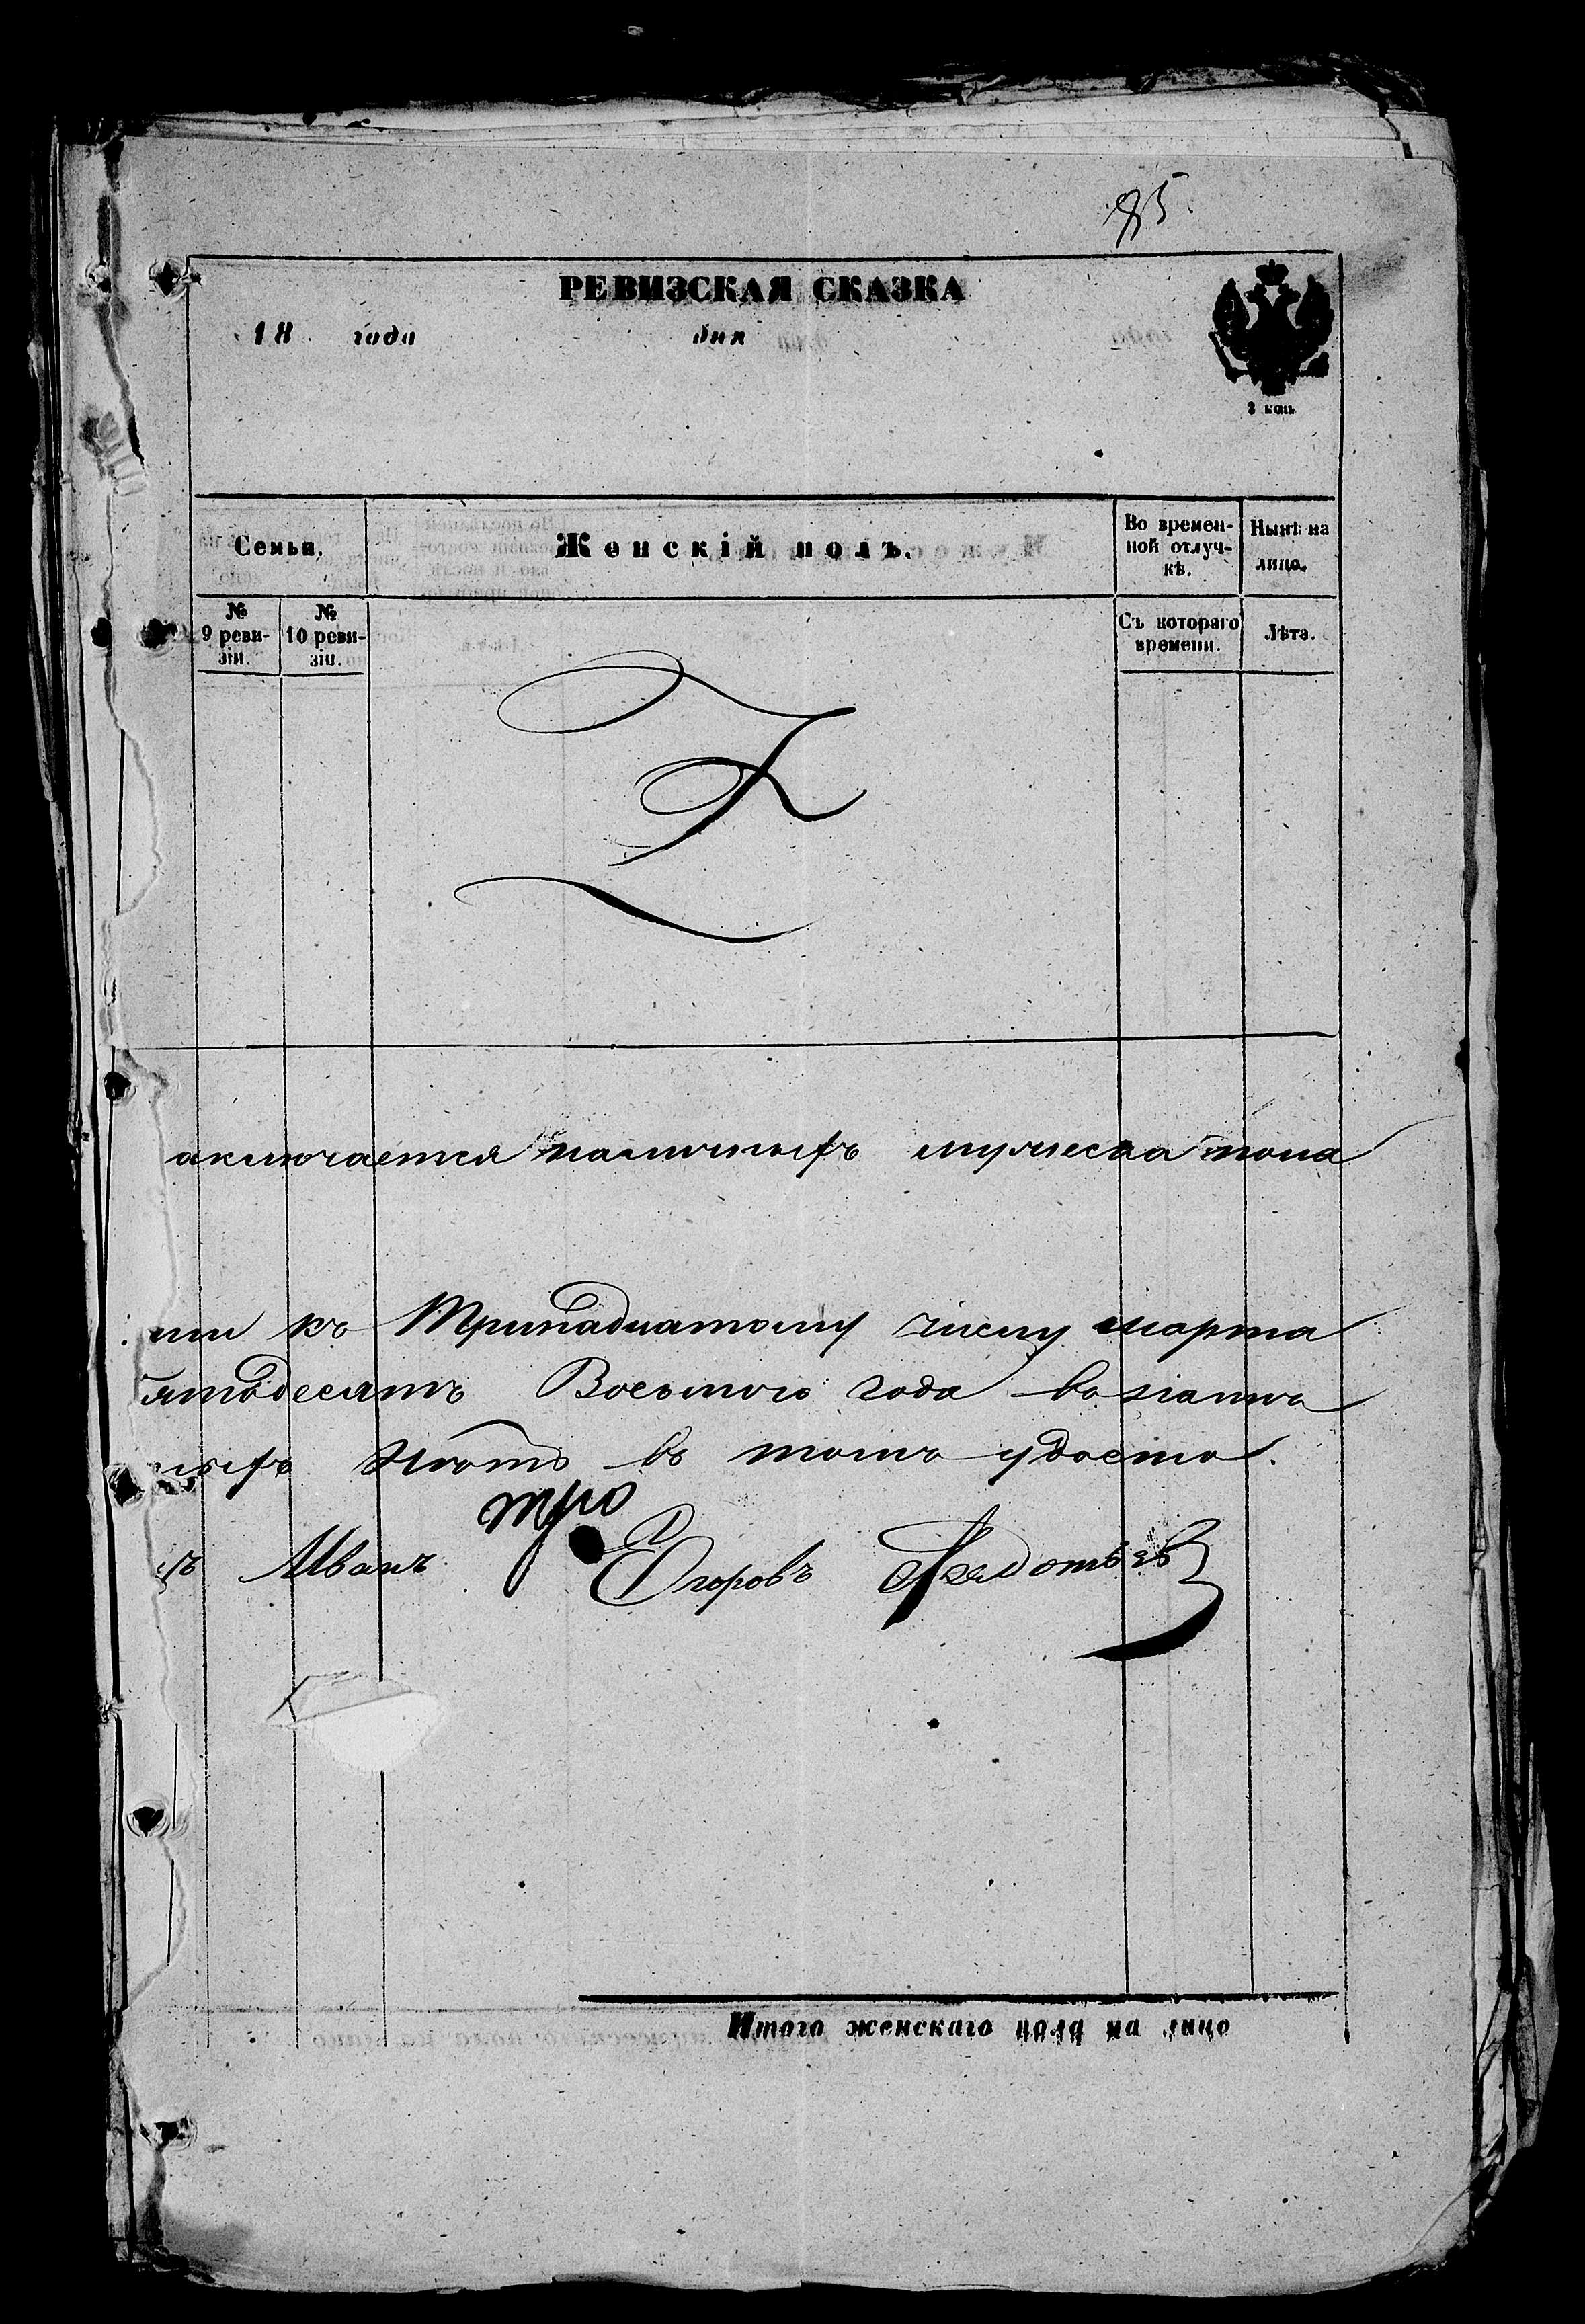 85
РЕВИЗСКАЯ СКАЗКА
18 года дня
2 коп.
Семьи.
Женскій полъ.
Во времен-
ной отлуч-
кѣ.
Нынѣ на
лицо.
№
9 реви-
зіи.
№
10 реви-
зіи.
Съ котораго
времени.
Лѣта.
аключается наличныхъ мужеска пола
къ Тринадцатому числу марта
ятьдесятъ Восьмого года
въ томъ удосто
Иванъ Егоровъ
Итого женскаго пола на лицо